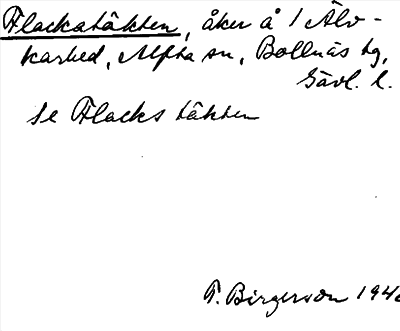 Flackatäkten, åker å 1 Älv-
karhed, Alfta sn, Bollnäs tg,
Gävl. l.
se Flackstäkten
T. Birgerson 1946